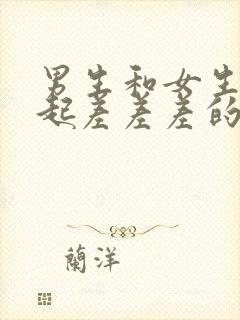 男生和女生
起差差差的
蘭洋